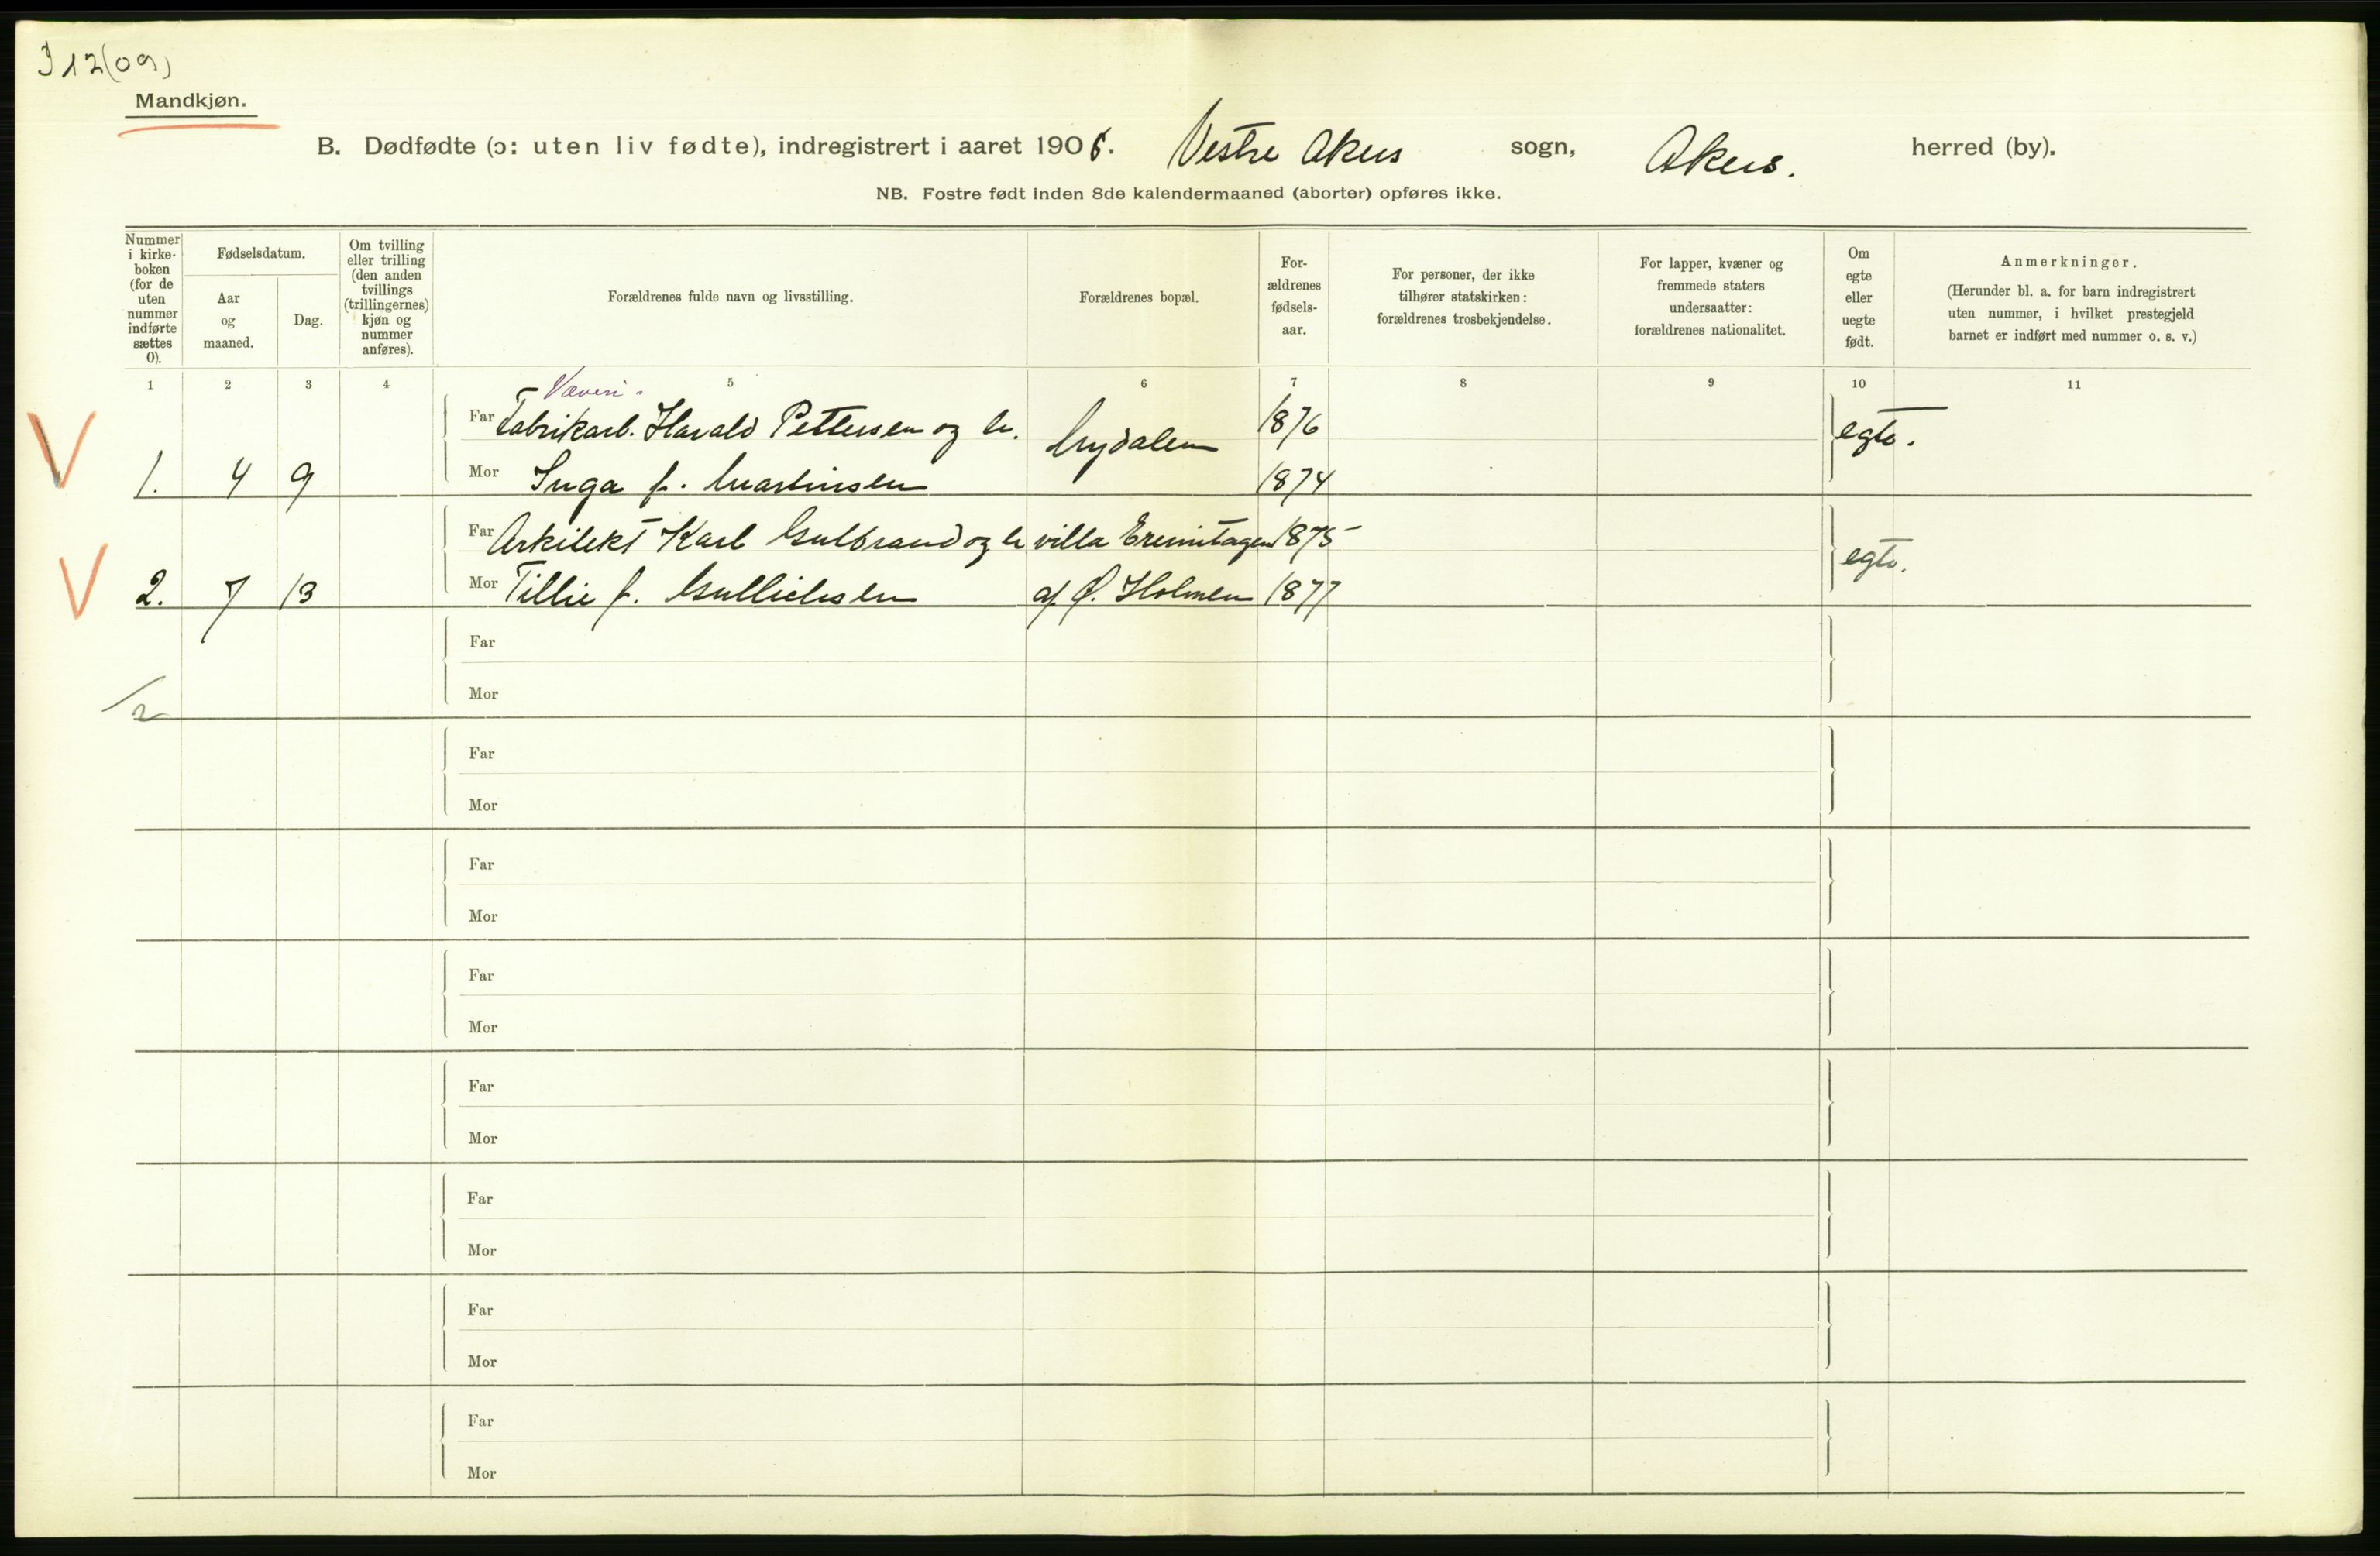 J 12(09)
Mandkjøn.
B. Dødfødte (ɔ: uten liv fødte), indregistrert i aaret 1906. Vestre Akers sogn, Akers. herred (by).
NB. Fostre født inden 8de kalendermaaned (aborter) opføres ikke.
Nummer i kirke-boken (for de uten nummer indførte sættes 0).
Fødselsdatum.
Aar og maaned.
Dag.
Om tvilling eller trilling (den anden tvillings (trillingernes) kjøn og nummer anføres).
Forældrenes fulde navn og livsstilling.
Forældrenes bopæl.
For-ældrenes fødsels-aar.
For personer, der ikke tilhører statskirken: forældrenes trosbekjendelse.
For lapper, kvæner og fremmede staters undersaatter: forældrenes nationalitet.
Om egte eller uegte født.
Anmerkninger.
(Herunder bl. a. for barn indregistrert uten nummer, i hvilket prestegjeld barnet er indført med nummer o. s. v.)
1 2 3 4 5 6 7 8 9 10 11
Væveri.
Far Fabrikarb. Harald Pettersen og h. Nydalen 1876 egte.
1. 4 9 Mor Inga f. Martinsen 1874
Far Arkitekt Karl Gulbrand og h villa Eremitagen 1875 egte.
2. 7 13 Mor Tillie f. Gullichsen af Ø. Holmen 1877
Far
Mor
2
Far
Mor
Far
Mor
Far
Mor
Far
Mor
Far
Mor
Far
Mor
Far
Mor